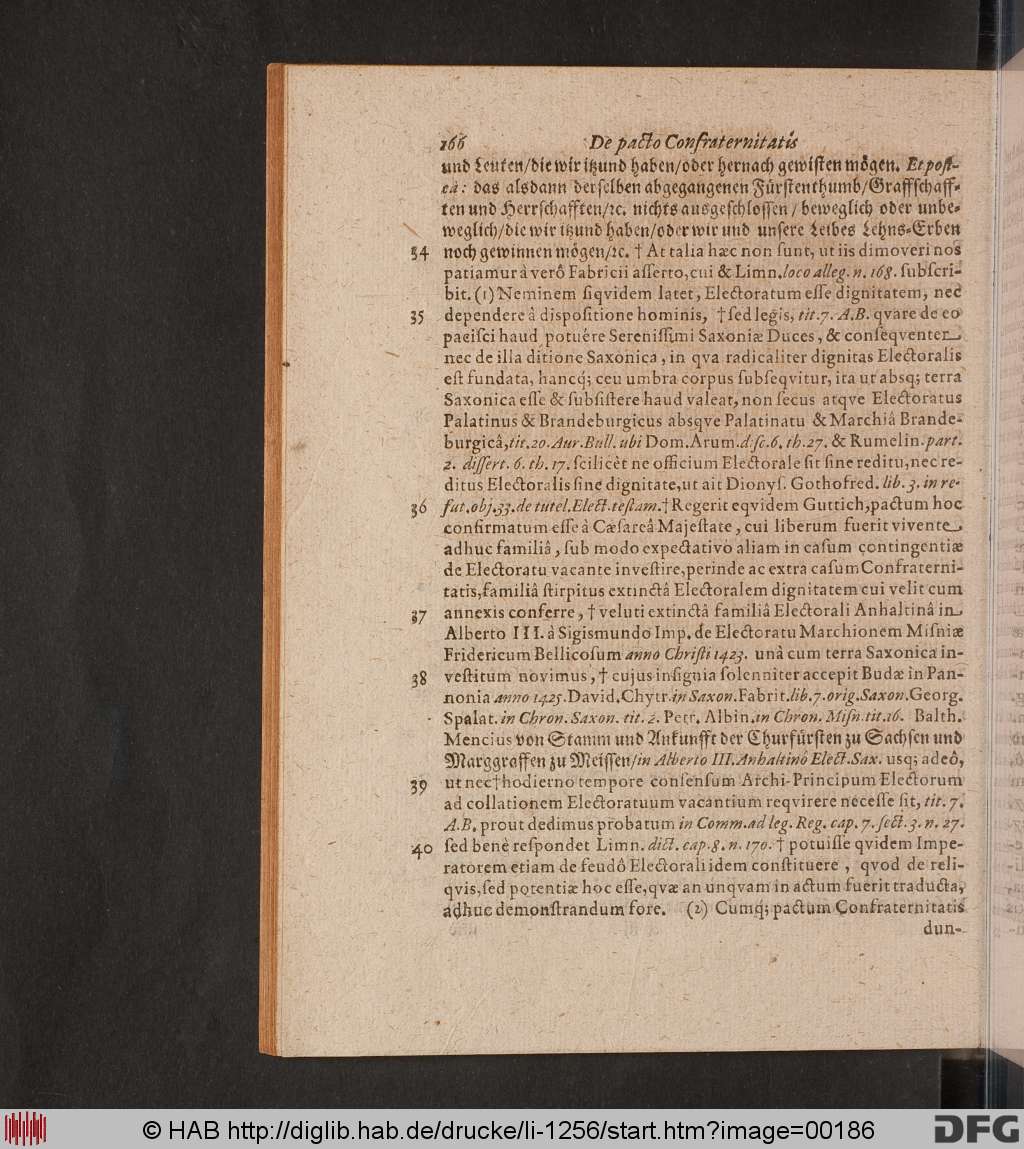 166 De pacto Confraternitatis
und Leuten/die wir itzund haben/oder hernach gewisten mögen. Et post-
eà: das alsdann derselben abgegangenen Fürstenthumb/Graffschaff-
ten und Herrschafften/ꝛc. nichts ausgeschlossen/beweglich oder unbe-
weglich/die wir itzund haben/oder wir und unsere Leibes Lehns-Erben
34 noch gewinnen mögen/ꝛc. † At talia hæc non sunt, ut iis dimoveri nos
patiamur à verô Fabricii asserto, cui & Limn. loco alleg. n. 168. subscri-
bit. (1) Neminem siqvidem latet, Electoratum esse dignitatem, nec
35 dependere â dispositione hominis, † sed legis, tit. 7. A.B. qvare de eo
pacisci haud potuêre Serenissimi Saxoniæ Duces, & conseqventer
nec de illa ditione Saxonica, in qva radicaliter dignitas Electoralis
est fundata, hancq; ceu umbra corpus subseqvitur, ita ut absq; terra
Saxonica esse & subsistere haud valeat, non secus atqve Electoratus
Palatinus & Brandeburgicus absqve Palatinatu & Marchiâ Brande-
burgicâ, tit. 20. Aur. Bull. ubi Dom. Arum. disc. 6. th. 27. & Rumelin. part.
2. dissert. 6. th. 17. scilicèt ne officium Electorale sit sine reditu, nec re-
ditus Electoralis sine dignitate, ut ait Dionys. Gothofred. lib. 3. in re-
36 fut. obj. 33. de tutel. Elect. testam. † Regerit eqvidem Guttich, pactum hoc
confirmatum esse à Cæsareâ Majestate, cui liberum fuerit vivente
adhuc familiâ, sub modo expectativo aliam in casum contingentiæ
de Electoratu vacante investire, perinde ac extra casum Confraterni-
tatis, familiâ stirpitus extinctâ Electoralem dignitatem cui velit cum
37 annexis conferre, † veluti extinctâ familiâ Electorali Anhaltinâ in
Alberto III. à Sigismundo Imp. de Electoratu Marchionem Misniæ
Fridericum Bellicosum anno Christi 1423. unâ cum terra Saxonica in-
38 vestitum novimus, † cujus insignia solenniter accepit Budæ in Pan-
nonia anno 1425. David. Chytr. in Saxon. Fabrit. lib. 7. orig. Saxon. Georg.
Spalat. in Chron. Saxon. tit. 2. Petr. Albin. in Chron. Misn. tit. 16. Balth.
Mencius von Stamm und Ankunfft der Churfürsten zu Sachsen und
Marggraffen zu Meissen/in Alberto III. Anhaltinô Elect. Sax. usq; adeô,
39 ut nec † hodierno tempore consensum Archi-Principum Electorum
ad collationem Electoratuum vacantium reqvirere necesse sit, tit. 7.
A.B. prout dedimus probatum in Comm. ad leg. Reg. cap. 7. sect. 3. n. 27.
40 sed benè respondet Limn. dict. cap. 8. n. 170. † potuisse qvidem Impe-
ratorem etiam de feudô Electorali idem constituere, qvod de reli-
qvis, sed potentiæ hoc esse, qvæ an unqvam in actum fuerit traducta,
adhuc demonstrandum fore. (2) Cumq; pactum Confraternitatis
dun-
© HAB http://diglib.hab.de/drucke/li-1256/start.htm?image=00186
DFG